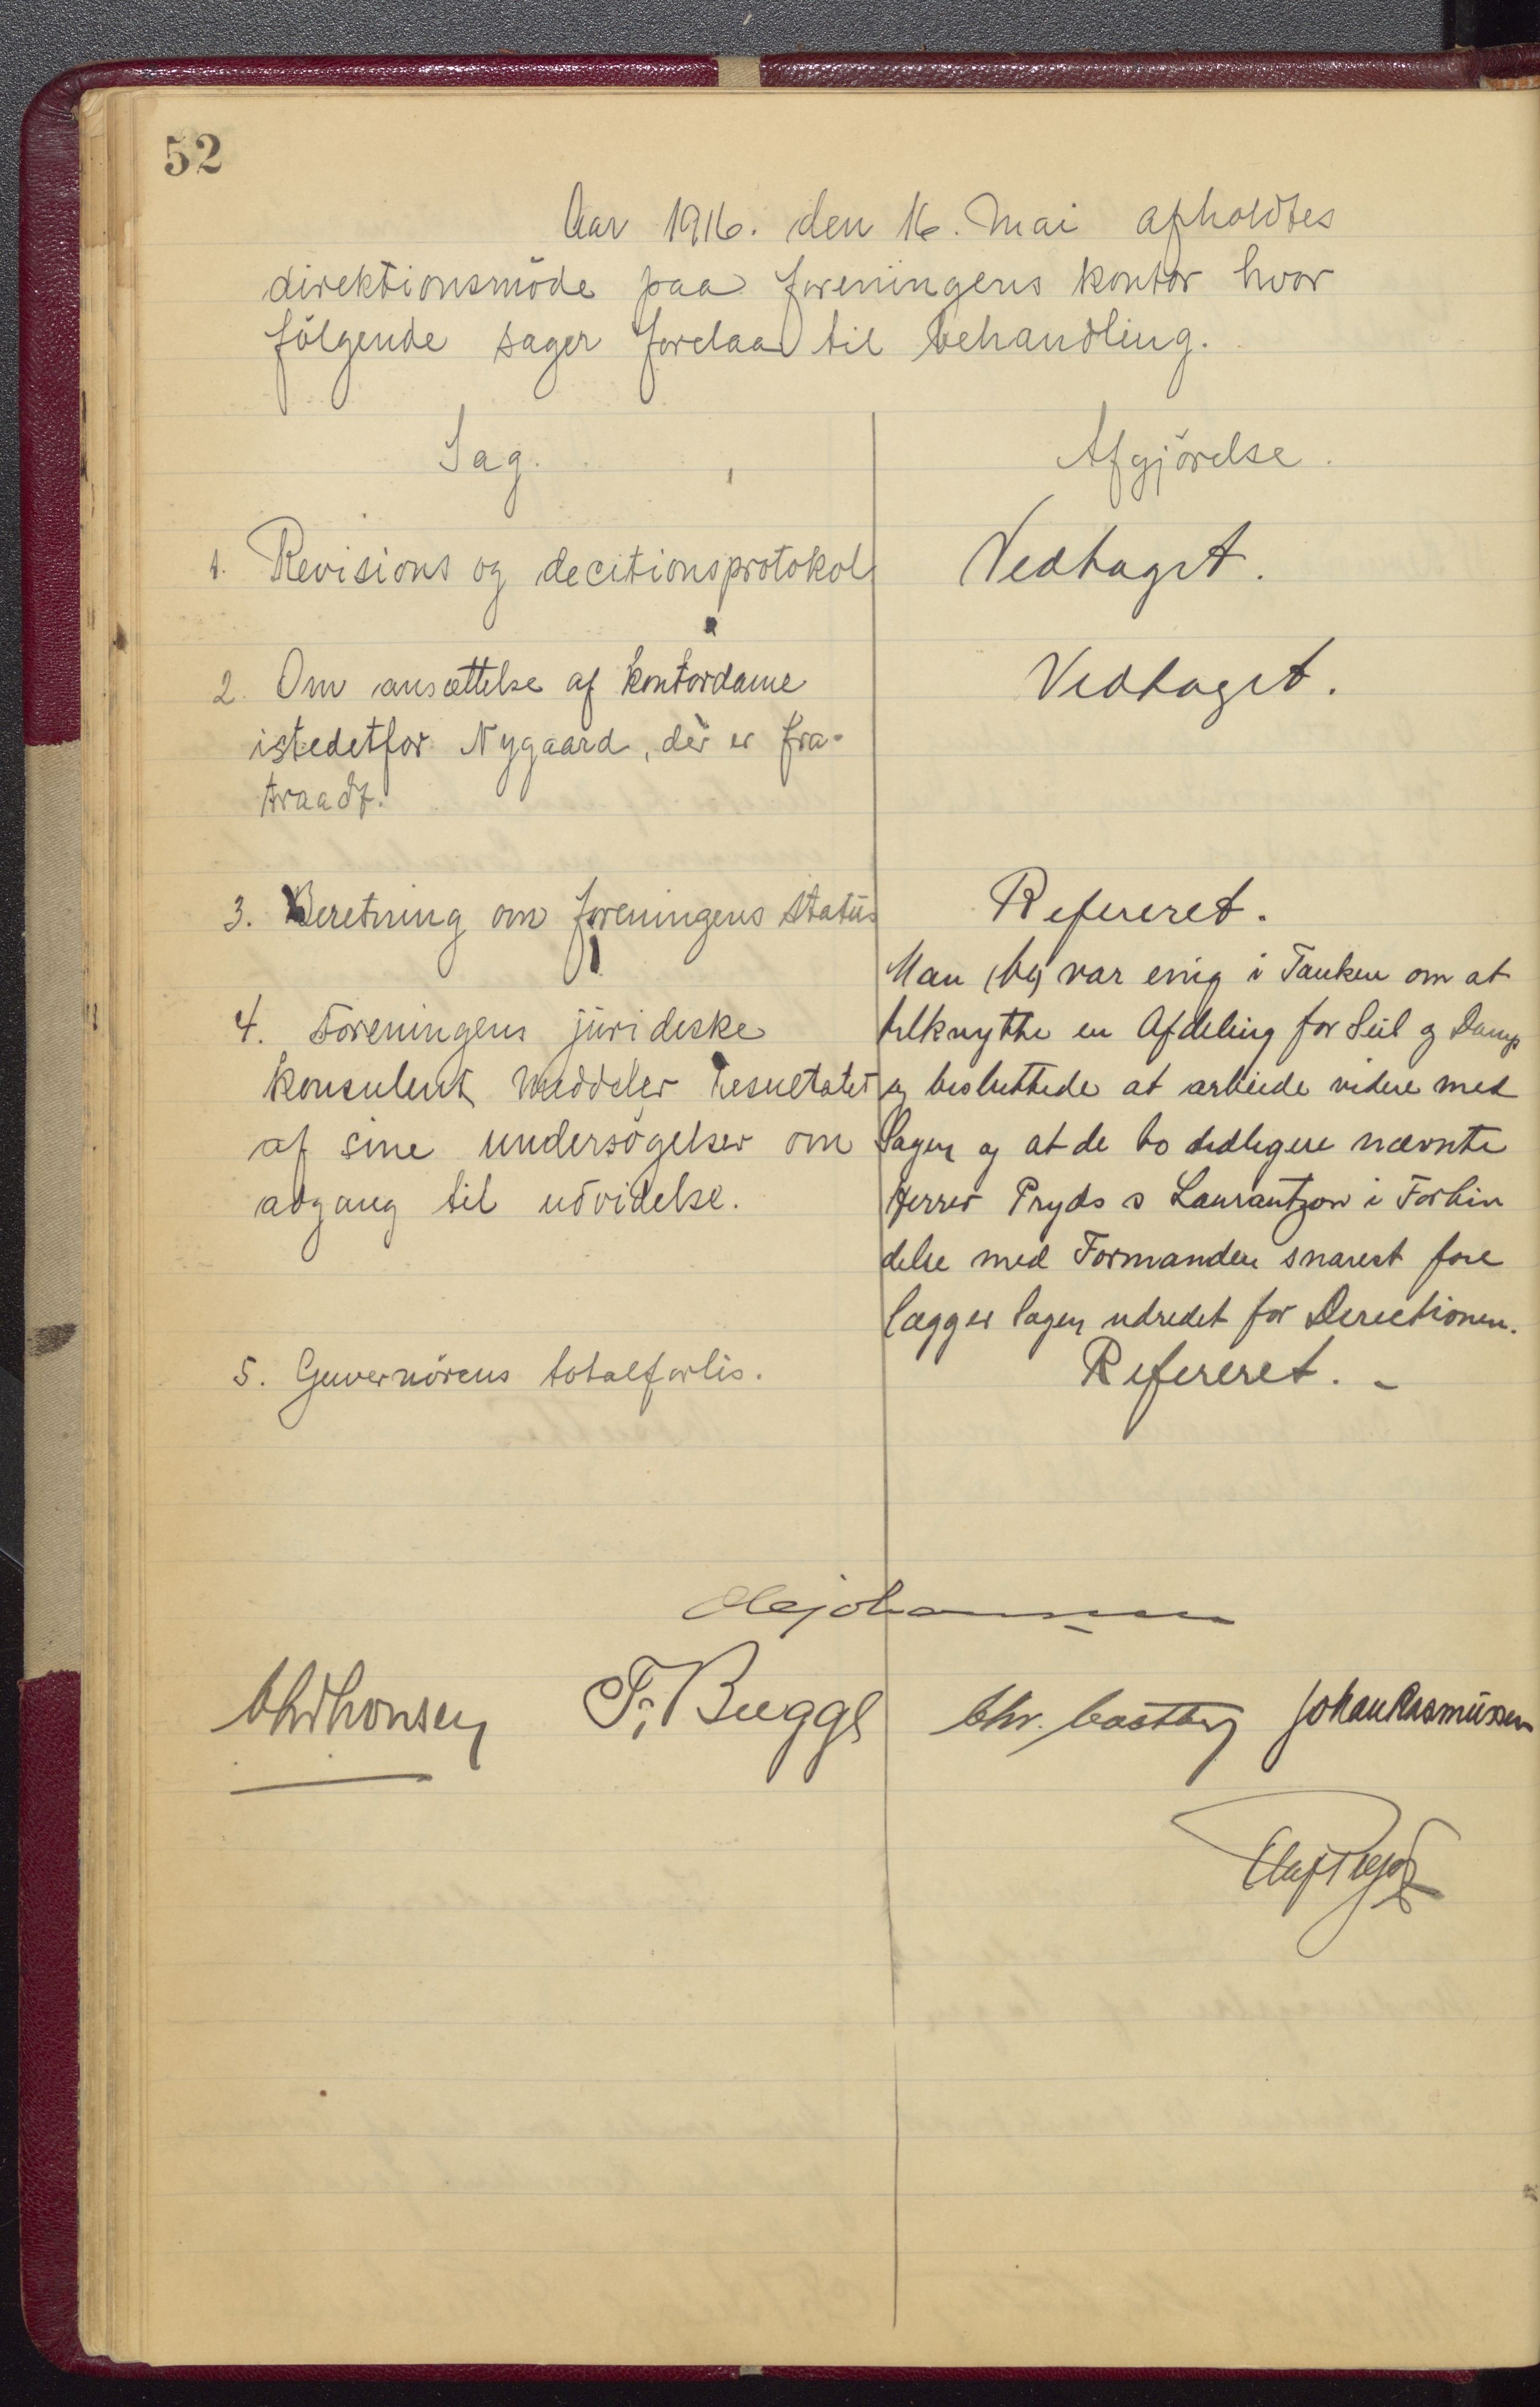 52
Aar 1916. den 16. Mai afholdtes
direktionsmöde paa foreningens kontor hvor
fölgende sager forelaa til behandling.
Sag.
Afgjörelse.
1. Revisions og decitionsprotokol
Vedtaget.
2. Om ansættelse af kontordame
istedetfor Nygaard, der er fra-
traadt.
Vedtaget.
3. Beretning om foreningens status
Refereret.
4. Foreningens juridiske
konsulent meddeler resultatet
af sine undersögelser om
adgang til udvidelse.
Man var enig i Tanken om at
tilknytte en Afdeling for Seil og Damp
og besluttede at arbeide videre med
Sagen og at de to tidligere nævnte
Herrer Pryds o Laurantzon i Forbin
delse med Formanden snarest fore
lægger Sagen udredet for Directionen.
5. Guvernörens totalforlis.
Refereret. -
Ole Johannessen
Chr Thonsen F. Bugge Chr. Castberg Johan Rasmussen